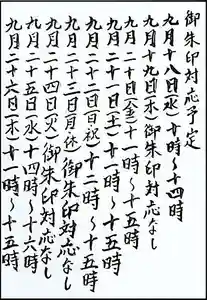 御朱印対応予定
九月十八日(水)十時〜十四時
九月十九日(木)御朱印対応なし
九月二十日(金)十一時〜十五時
九月二十一日(土)十一時〜十五時
九月二十二日(日祝)十二時〜十五時
九月二十三日(月休)御朱印対応なし
九月二十四日(火)御朱印対応なし
九月二十五日(水)十四時〜十六時
九月二十六日(木)十一時〜十五時